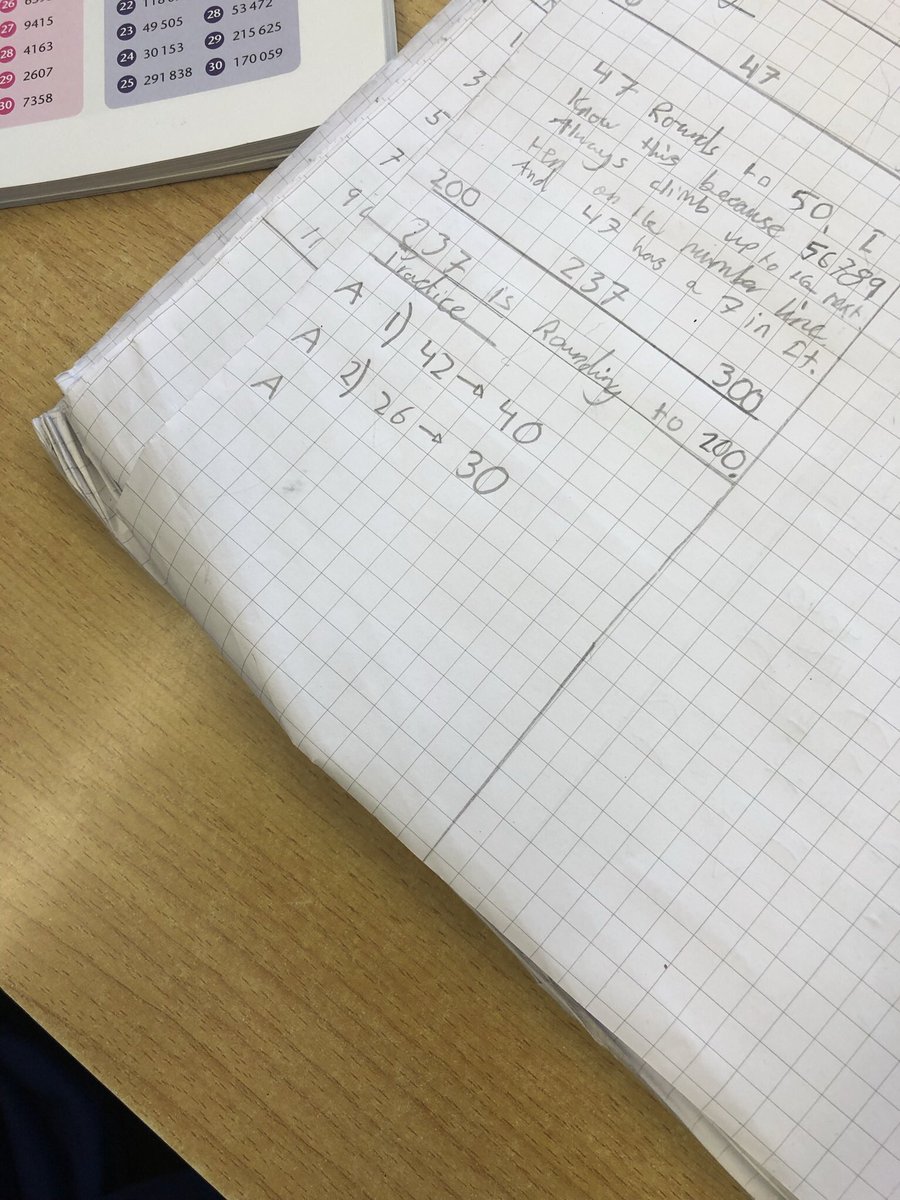 27 9415
28 4163
29 2607
30 7358
22
23 49 505
24 30 153
25 291 838
28 53 472
29 215 625
30 170 059
47
47 Rounds to 50, I
Know this because 56789
Always climb up to the next
ten on the number line
And 47 has a 7 in It.
200 237 300
237 is Rounding to 200.
Practice
A 1) 42 → 40
A 2) 26 → 30
A
1
3
5
7
9
11